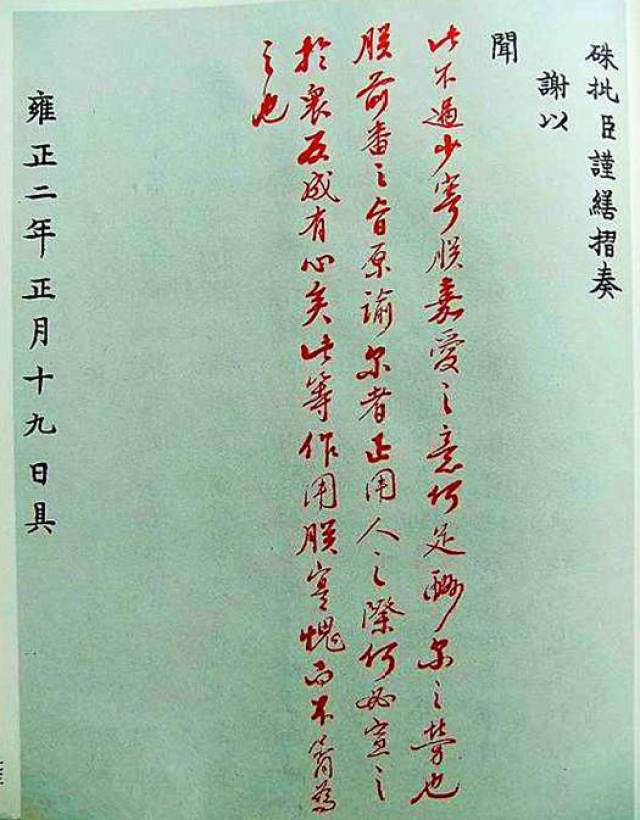 硃批臣謹繕摺奏
謝以
聞
此不過少寄朕嘉愛之意何足酬尔之勞也
朕前番之旨原諭尔者正用人之際何必宣之
於衆反成有心矣此等作用朕實愧而不肯為
之也
雍正二年正月十九日具